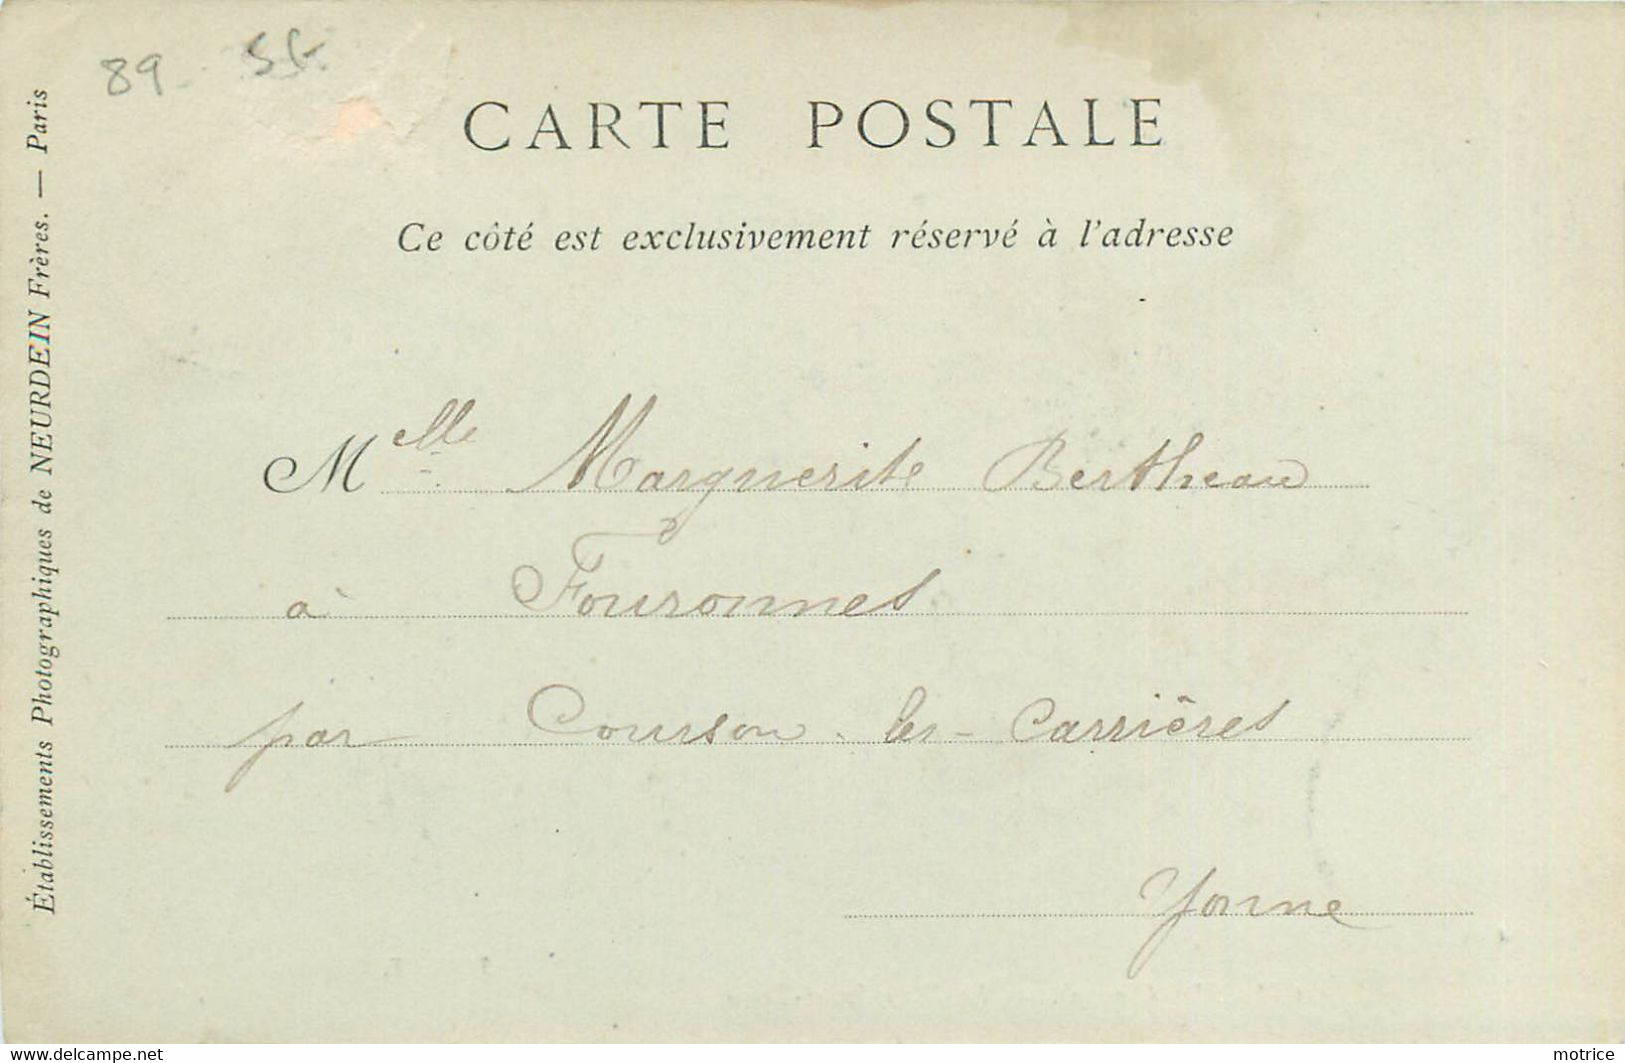 89 - 5f-
CARTE POSTALE
Ce côté est exclusivement réservé à l'adresse
Melle Marguerite Bertheau
à Fouronnes
par Courson-les-Carrières
Yonne
Établissements Photographiques de NEURDEIN Frères. — Paris
https://www.delcampe.net
motrice